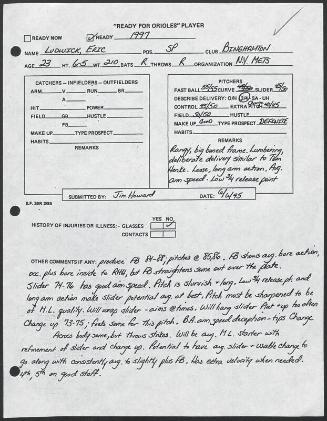 "READY FOR ORIOLES" PLAYER
READY NOW READY 1997
NAME LUDWICK, ERIC POS. SP CLUB BINGHAMTON
AGE 23 HT. 6-5 WT. 210 BATS R THROWS R ORGANIZATION N.Y. METS
CATCHERS - INFIELDERS - OUTFIELDERS
ARM V RUN BR
A
HIT POWER
FIELD GG HUSTLE
FB
MAKE UP TYPE PROSPECT
HABITS
REMARKS
PITCHERS
FAST BALL CURVE SLIDER
DESCRIBE DELIVERY: O/H SA - UH
CONTROL 45/50 EXTRA
FIELD 50/50 HUSTLE
MAKE UP GOOD TYPE PROSPECT DEFINITE
HABITS
REMARKS
Rangy, big boned frame. Lumbering,
deliberate delivery similar to Pat
Hentg. Loose, long arm action. Avg.
arm speed. Low 3/4 release point
SUBMITTED BY: Jim Howard DATE: 6/6/95
HISTORY OF INJURIES OR ILLNESS: - GLASSES
CONTACTS
YES NO
OTHER COMMENTS IF ANY: produce FB 84-88, pitches @ 85,86. FB shows avg. bore action,
occ. plus bore inside to RHH, but FB straightens some out over the plate.
Slider 74-76 has good arm speed. Pitch is slurvish + long. Low 3/4 release pt. and
long arm action make slider potential avg. at best. Pitch must be sharpened to be
of M.L. quality. Will hang slider - aims @ times. Will hang slider
Change up 73-75; feels some for this pitch. B.A. arm speed deception - tips change
Across body some, but throws strikes. Will be avg. M.L. starter with
refinement of slider and change up. Potential to have avg. slider + usable change to
go along with consistently avg. to slightly plus FB. Has extra velocity when needed.
4th, 5th on good staff.